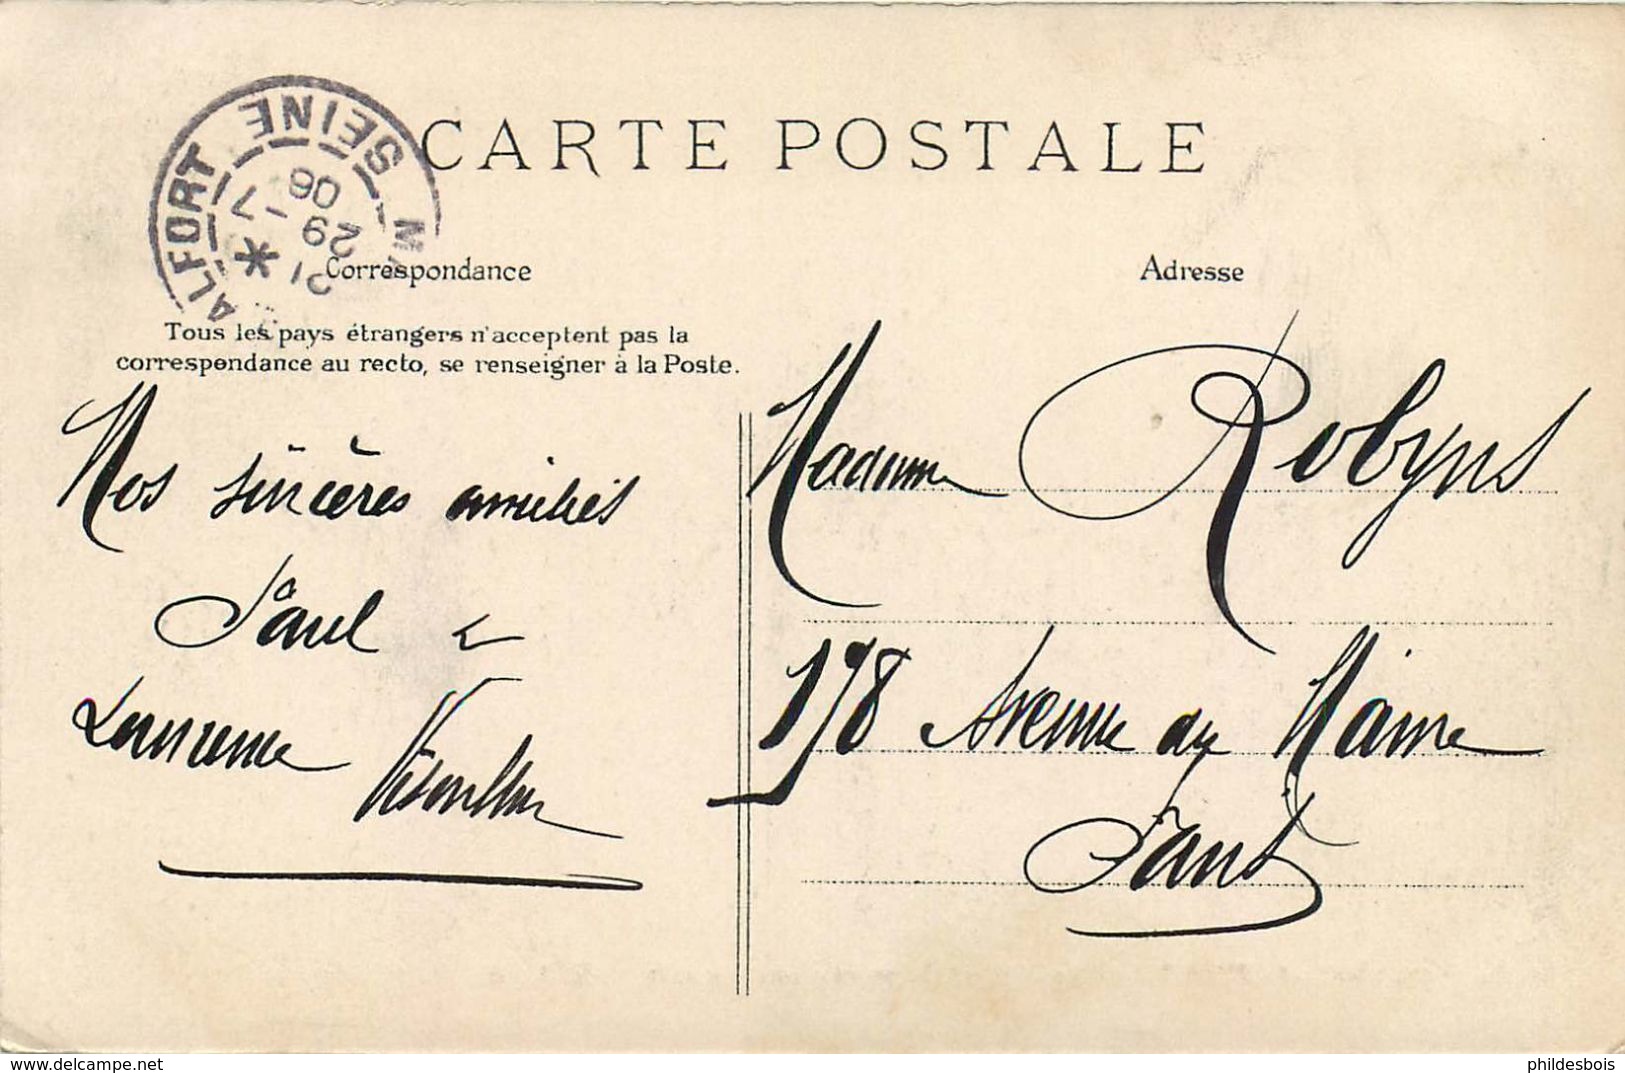 CARTE POSTALE
ALFORT SEINE
21
29 -7
06
Correspondance
Adresse
Tous les pays étrangers n'acceptent pas la
correspondance au recto, se renseigner à la Poste.
Nos sincères amitiés
Paul &
Madame Robyns
198 Avenue du Maine
Paris
delcampe.net
phildesbois